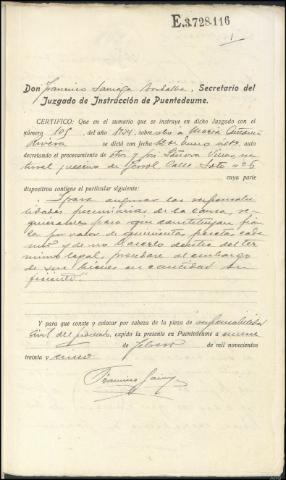 E.3.728.116
1
Don Francisco , Secretario del
Juzgado de Instrucción de Puentedeume.
CERTIFICO: Que en el sumario que se instruye en dicho Juzgado con el
número 105 del año sobre robo a María
Rivera se dictó con fecha de Enero auto
decretando el procesamiento de otros y por
Ferrol Calle Soto
cuya parte
dispositiva contiene el particular siguiente:
para asegurar las responsabi
lidades pecuniarias de la causa, re-
quiérase para que constituyan fian
za por valor de quinientas pesetas cada
uno y de no hacerlo dentro del ter
mino legal, procédase al embargo
de sus bienes en cantidad su
ficiente.
Y para que conste y colocar por cabeza de la pieza de responsabilidad
civil del procesado, expido la presente en Puentedeume a nueve
de Febrero de mil novecientos
treinta y cinco
Francisco